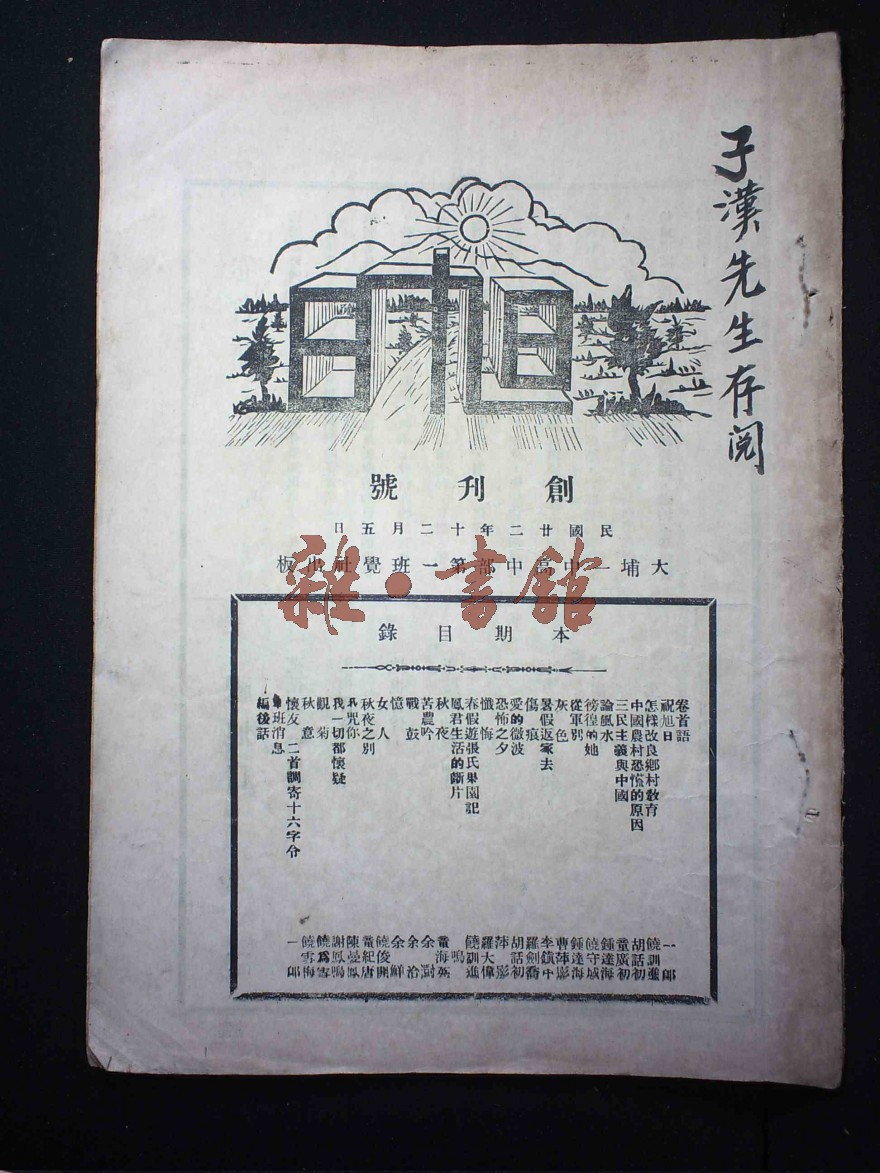 子漢先生存閱
旭日
創刊號
民國廿二年十二月五日
大埔一中高中部第一班覺社出板
雜·書館
本期目錄
卷首語
祝旭日
怎樣改良鄉村教育
中國農村恐慌的原因
三民主義與中國
論風水
徬徨的她
從軍別
灰色
暑假返家去
傷痕
愛的微波
恐怖之夕
懺悔
春假遊張氏果園記
鳳君生活的斷片
秋夜
苦農吟
戰鼓
憶
女人
秋夜之別
咒你
我一切都懷疑
觀菊
秋意
懷友 二首調寄十六字令
班消息
編後話
一郎
饒訓進
胡話初
童廣初
鍾達海
饒守城
鍾達海
曹萍影
李鎮中
羅劍喬
胡話初
萍影
羅大偉
饒訓進
鳴
童海英
余澍
余治
余鮮
饒俊開
童紀唐
陳曼鳳
謝鳳鳴
饒爲雪
饒雪梅
一郎